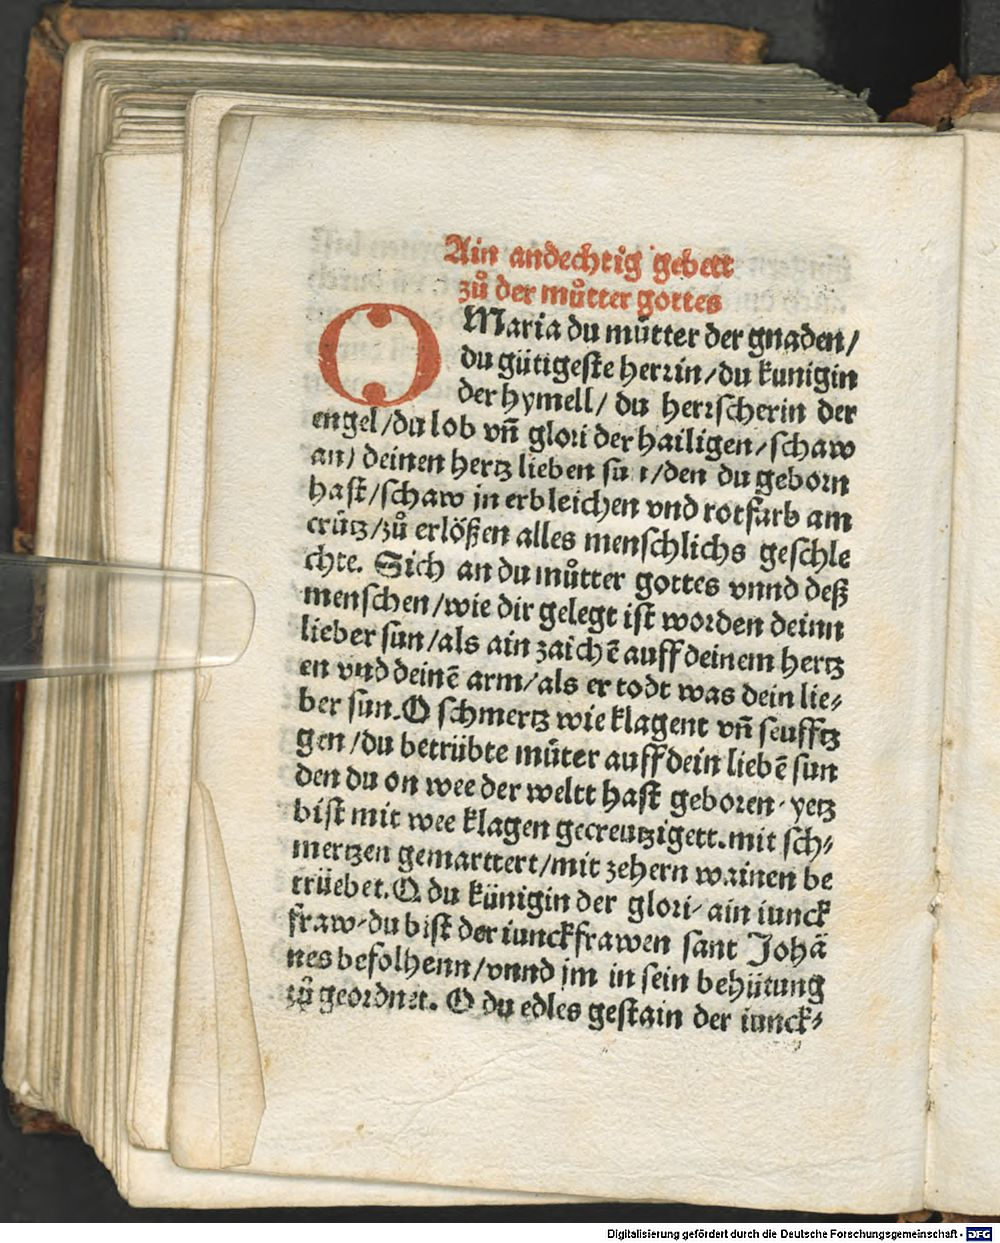 Ain andechtig gebett
zů der můtter gottes
O Maria du můtter der gnaden/
du gütigeste herrin/du kunigin
der hymell/ du herrscherin der
engel/du lob vñ glori der hailigen/schaw
an) deinen hertz lieben su /den du geborn
hast/schaw in erbleichen vnd rotfarb am
crütz/zů erlößen alles menschlichs geschle
chte. Sich an du můtter gottes vnnd deß
menschen/wie dir gelegt ist worden deinn
lieber sun/als ain zaichē auff deinem hertz
en vnd deinē arm/als er todt was dein lie⸗
ber sun. O schmertz wie klagent vñ seufftz
gen/du betrübte můter auff dein liebē sun
den du on wee der weltt hast geboren/yetz
bist mit wee klagen gecreutzigett.mit sch⸗
mertzen gemarttert/mit zehern wainen be
trüebet.O du künigin der glori/ain iunck
fraw/du bist der iunckfrawen sant Johā
nes befolhenn/vnnd jm in sein behütung
zů geordnet. O du edles gestain der iunck⸗
Digitalisierung gefördert durch die Deutsche Forschungsgemeinschaft - DFG